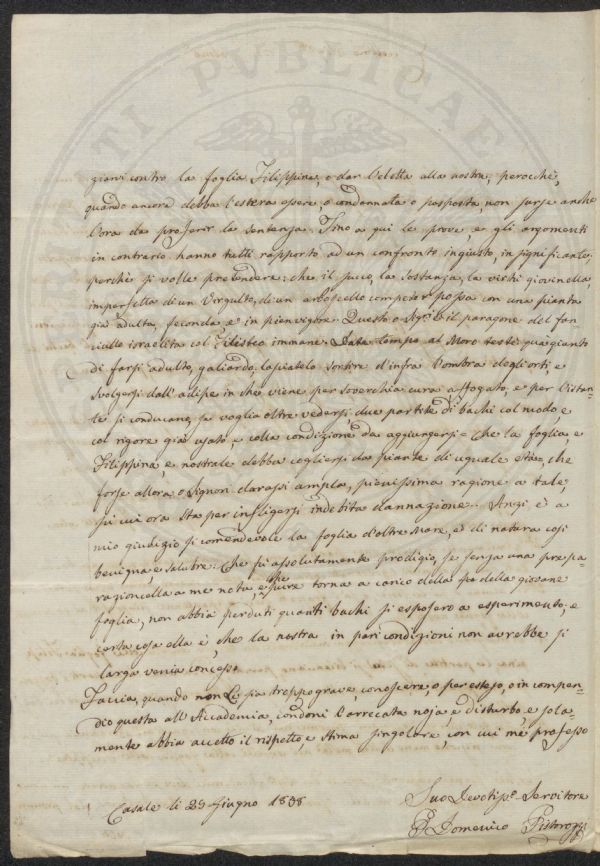 zioni contro la foglia Filippina, o dar l'eletta alla nostra; perocché,
quando ancora debba l'estera essere, o condannata o posposta, non surse anche
l'ora da proferir la sentenza. Fino a qui le prove, e gli argomenti
in contrario hanno tutti rapporto ad un confronto ingiusto, insignificante;
perchè si volle pretendere: che il succo, la sostanza, la virtù giovinella,
imperfetta di un Virgulto, di un arboscello competer possa con una pianta
già adulta, feconda, e in pien vigore. Questo o Sigri è il paragone del fan-
ciullo israelita col Filisteo immane. Date tempo al Moro testè qua giunto
di farsi adulto, galiardo, lasciatelo sortire d'infra l'ombra degli orti, e
svolgersi dall'adipe in che viene per soverchia cura affogato, e per l'istan-
te si conducano, se voglia oltre vedersi, due partite di bachi col modo, e
col rigore già usato, e colla condizione da aggiungersi = Che la foglia, e
Filippina, e nostrale debba cogliersi da piante di uguale età, che
forse allora, o Signori darassi ampla, pienissima ragione a tale,
su cui ora sta per infligersi indebita dannazione. Anzi è a
mio giudizio sì comendevole la foglia d'oltre Mare, e di natura così
benigna, e salubre: Che fu assolutamente prodigio, se senza una prepa-
razioncella a me nota, e che pure torna a carico della sia della giovane
foglia, non abbia perduti quanti bachi si esposero a esperimento; e
certa cosa ella è, che la nostra in pari condizioni non avrebbe sì
larga venia concesso.
Faccia, quando non Le sia troppo grave, conoscere, o per esteso, o in compen-
dio questa all'Accademia, condoni l'arrecata noja, e disturbo, e sola-
mente abbia accetto il rispetto, e stima singolare, con cui me professo
Casale li 29 Giugno 1838
Suo Devotiss.o Servitore
P. Domenico Pistorozzi
RATI PVBLICAE